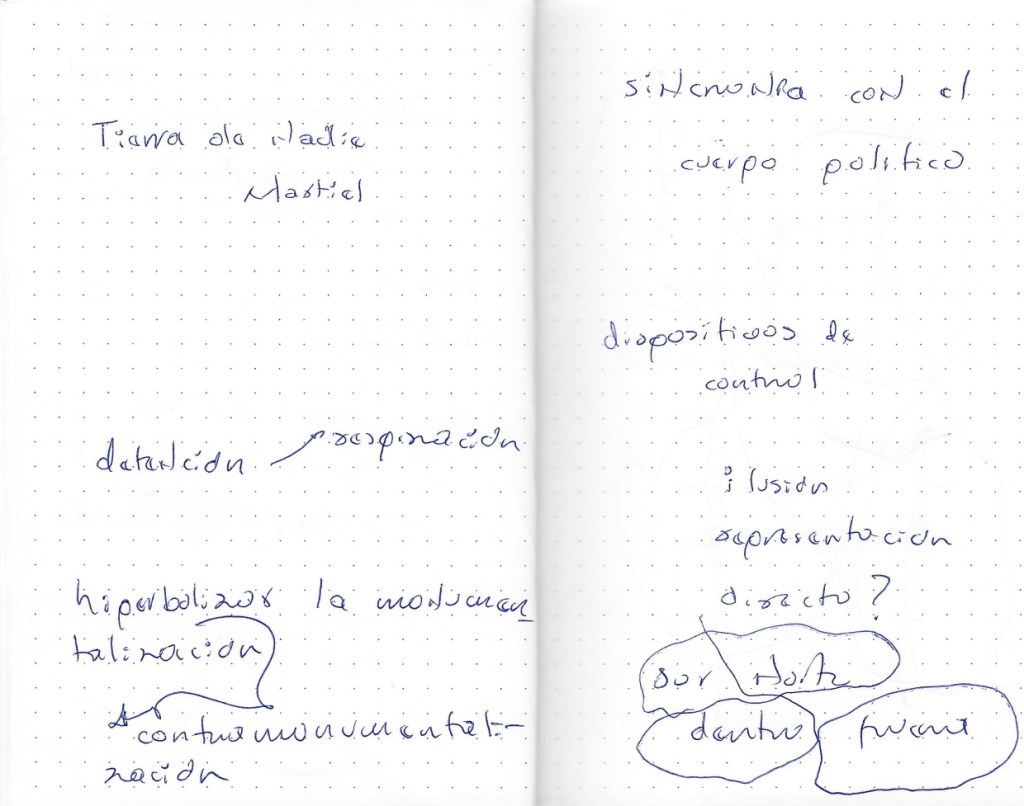 Tierra de Nadie
Martiel
detención respiración
hiperbolizar la monumen
talización
contramonumentali-
zación
sincronika con el
cuerpo político
dispositivos de
control
ilusión
representación
directo?
sur Norte
dentro fuera